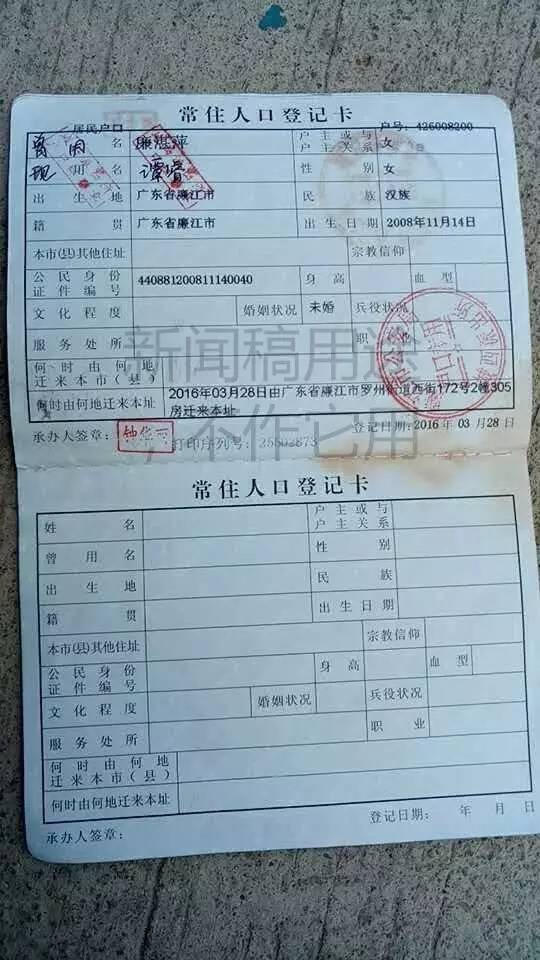 常住人口登记卡
居民户口 户号: 426008200
曾用名 廉思萍 户主或与户主关系 女
现用名 性别 女
出生地 广东省廉江市 民族 汉族
籍贯 广东省廉江市 出生日期 2008年11月14日
本市(县)其他住址 宗教信仰
公民身份证件编号 440881200811140040 身高 血型
文化程度 婚姻状况 未婚 兵役状况
服务处所 职业
何时由何地迁来本市(县)
何时由何地迁来本址 2016年03月28日由广东省廉江市罗州街道西街172号2幢305房迁来本址
承办人签章: 打印序列号: 25502873 登记日期:2016年03月28日
新闻稿用途
,不作它用
常住人口登记卡
姓名 户主或与户主关系
曾用名 性别
出生地 民族
籍贯 出生日期
本市(县)其他住址 宗教信仰
公民身份证件编号 身高 血型
文化程度 婚姻状况 兵役状况
服务处所 职业
何时由何地迁来本市(县)
何时由何地迁来本址
登记日期: 年 月 日
承办人签章: